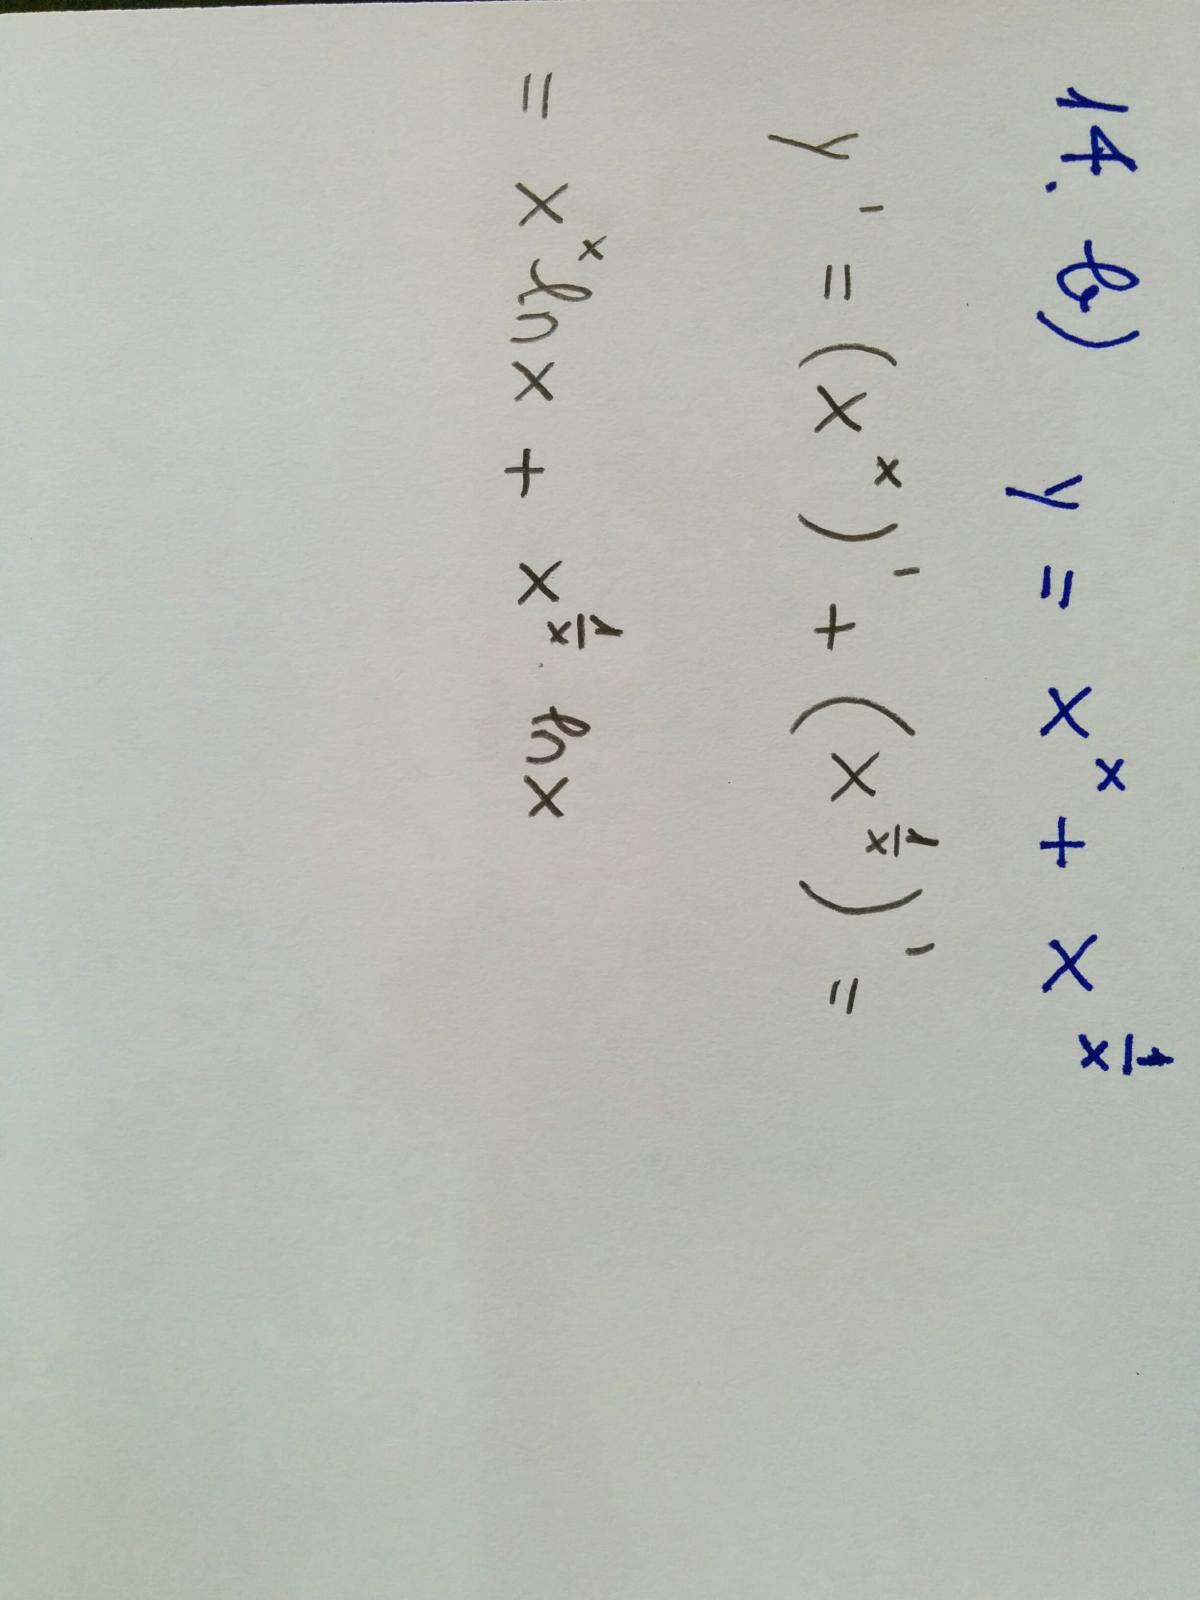 14. b) y = x^x + x^{1/x}
y' = (x^x)' + (x^{1/x})' =
= x^x ln x + x^{1/x} · ln x